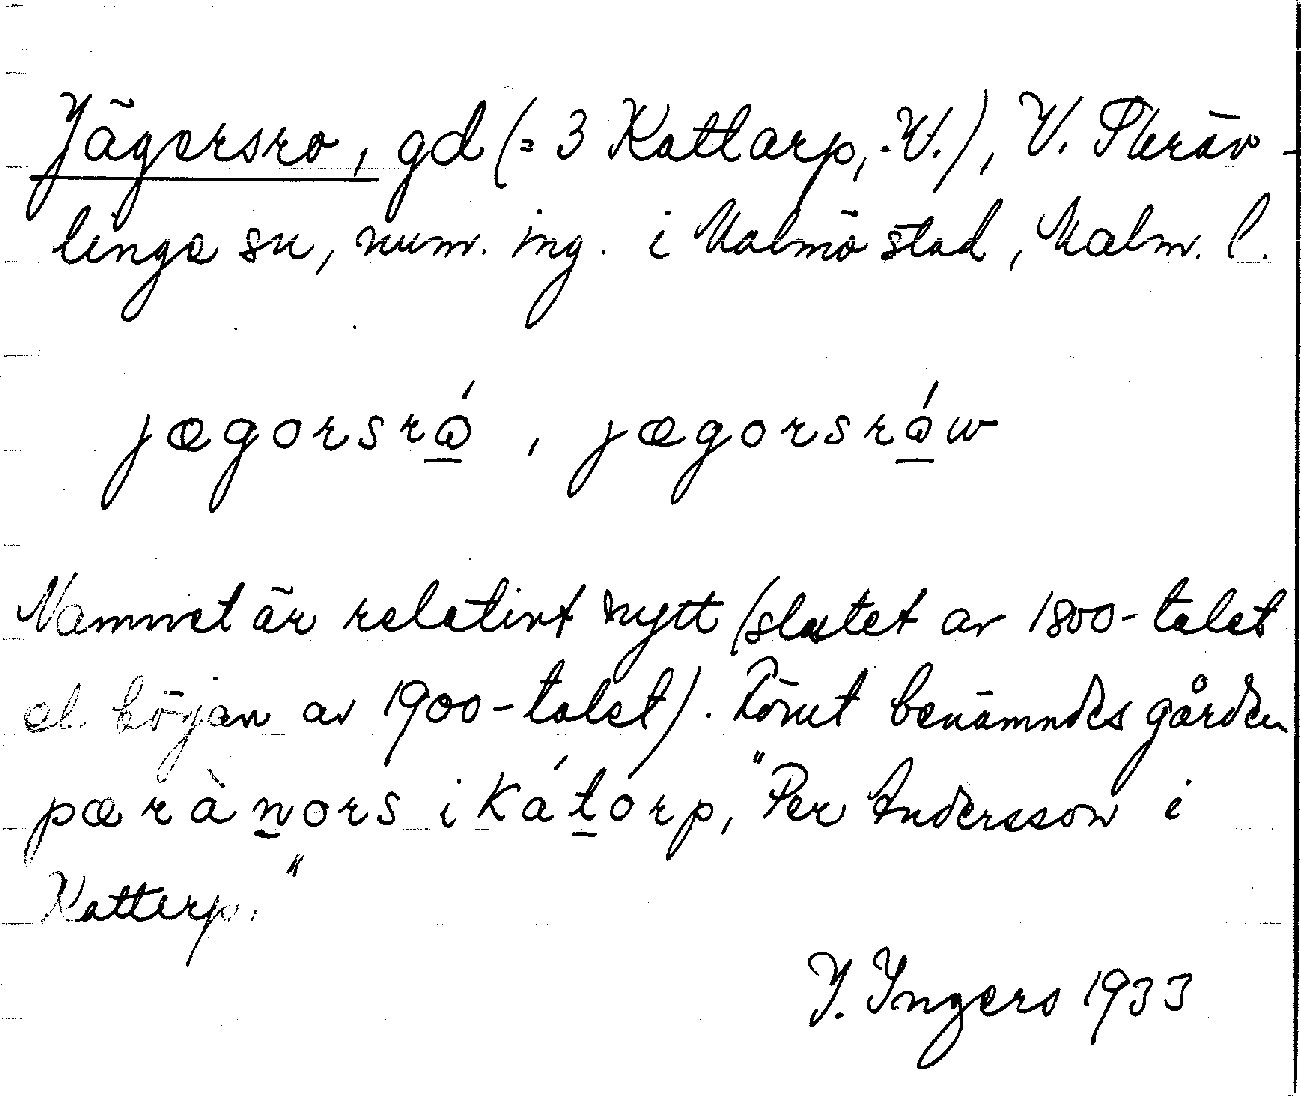 Jägersro, gd (= 3 Kattarp, V.), V. Skräv-
linge sn, num. ing. i Malmö stad, Malm. l.
jægorsrɷ́, jægorsrɷ́w
Namnet är relativt nytt (slutet av 1800-talet
el. början av 1900-talet). Förut benämndes gården
pæràṉors i káṯórp, "Per Andersson i
Katterp."
I. Ingers 1933